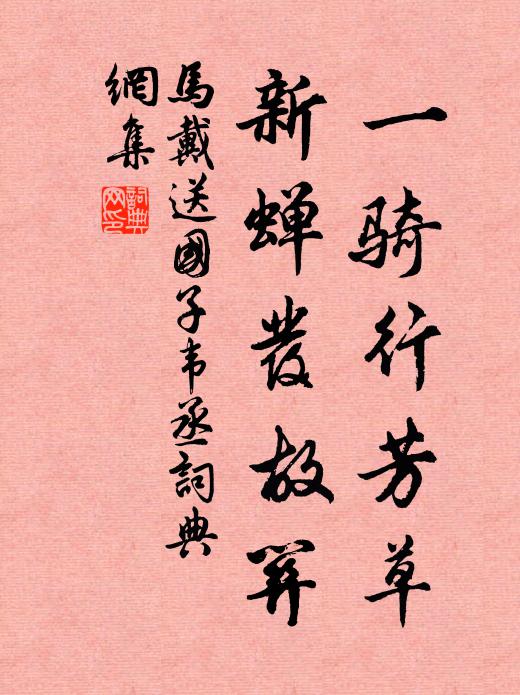 一骑行芳草
新蝉發故關
馬戴送國子韦丞詞典
網集
詞典网印